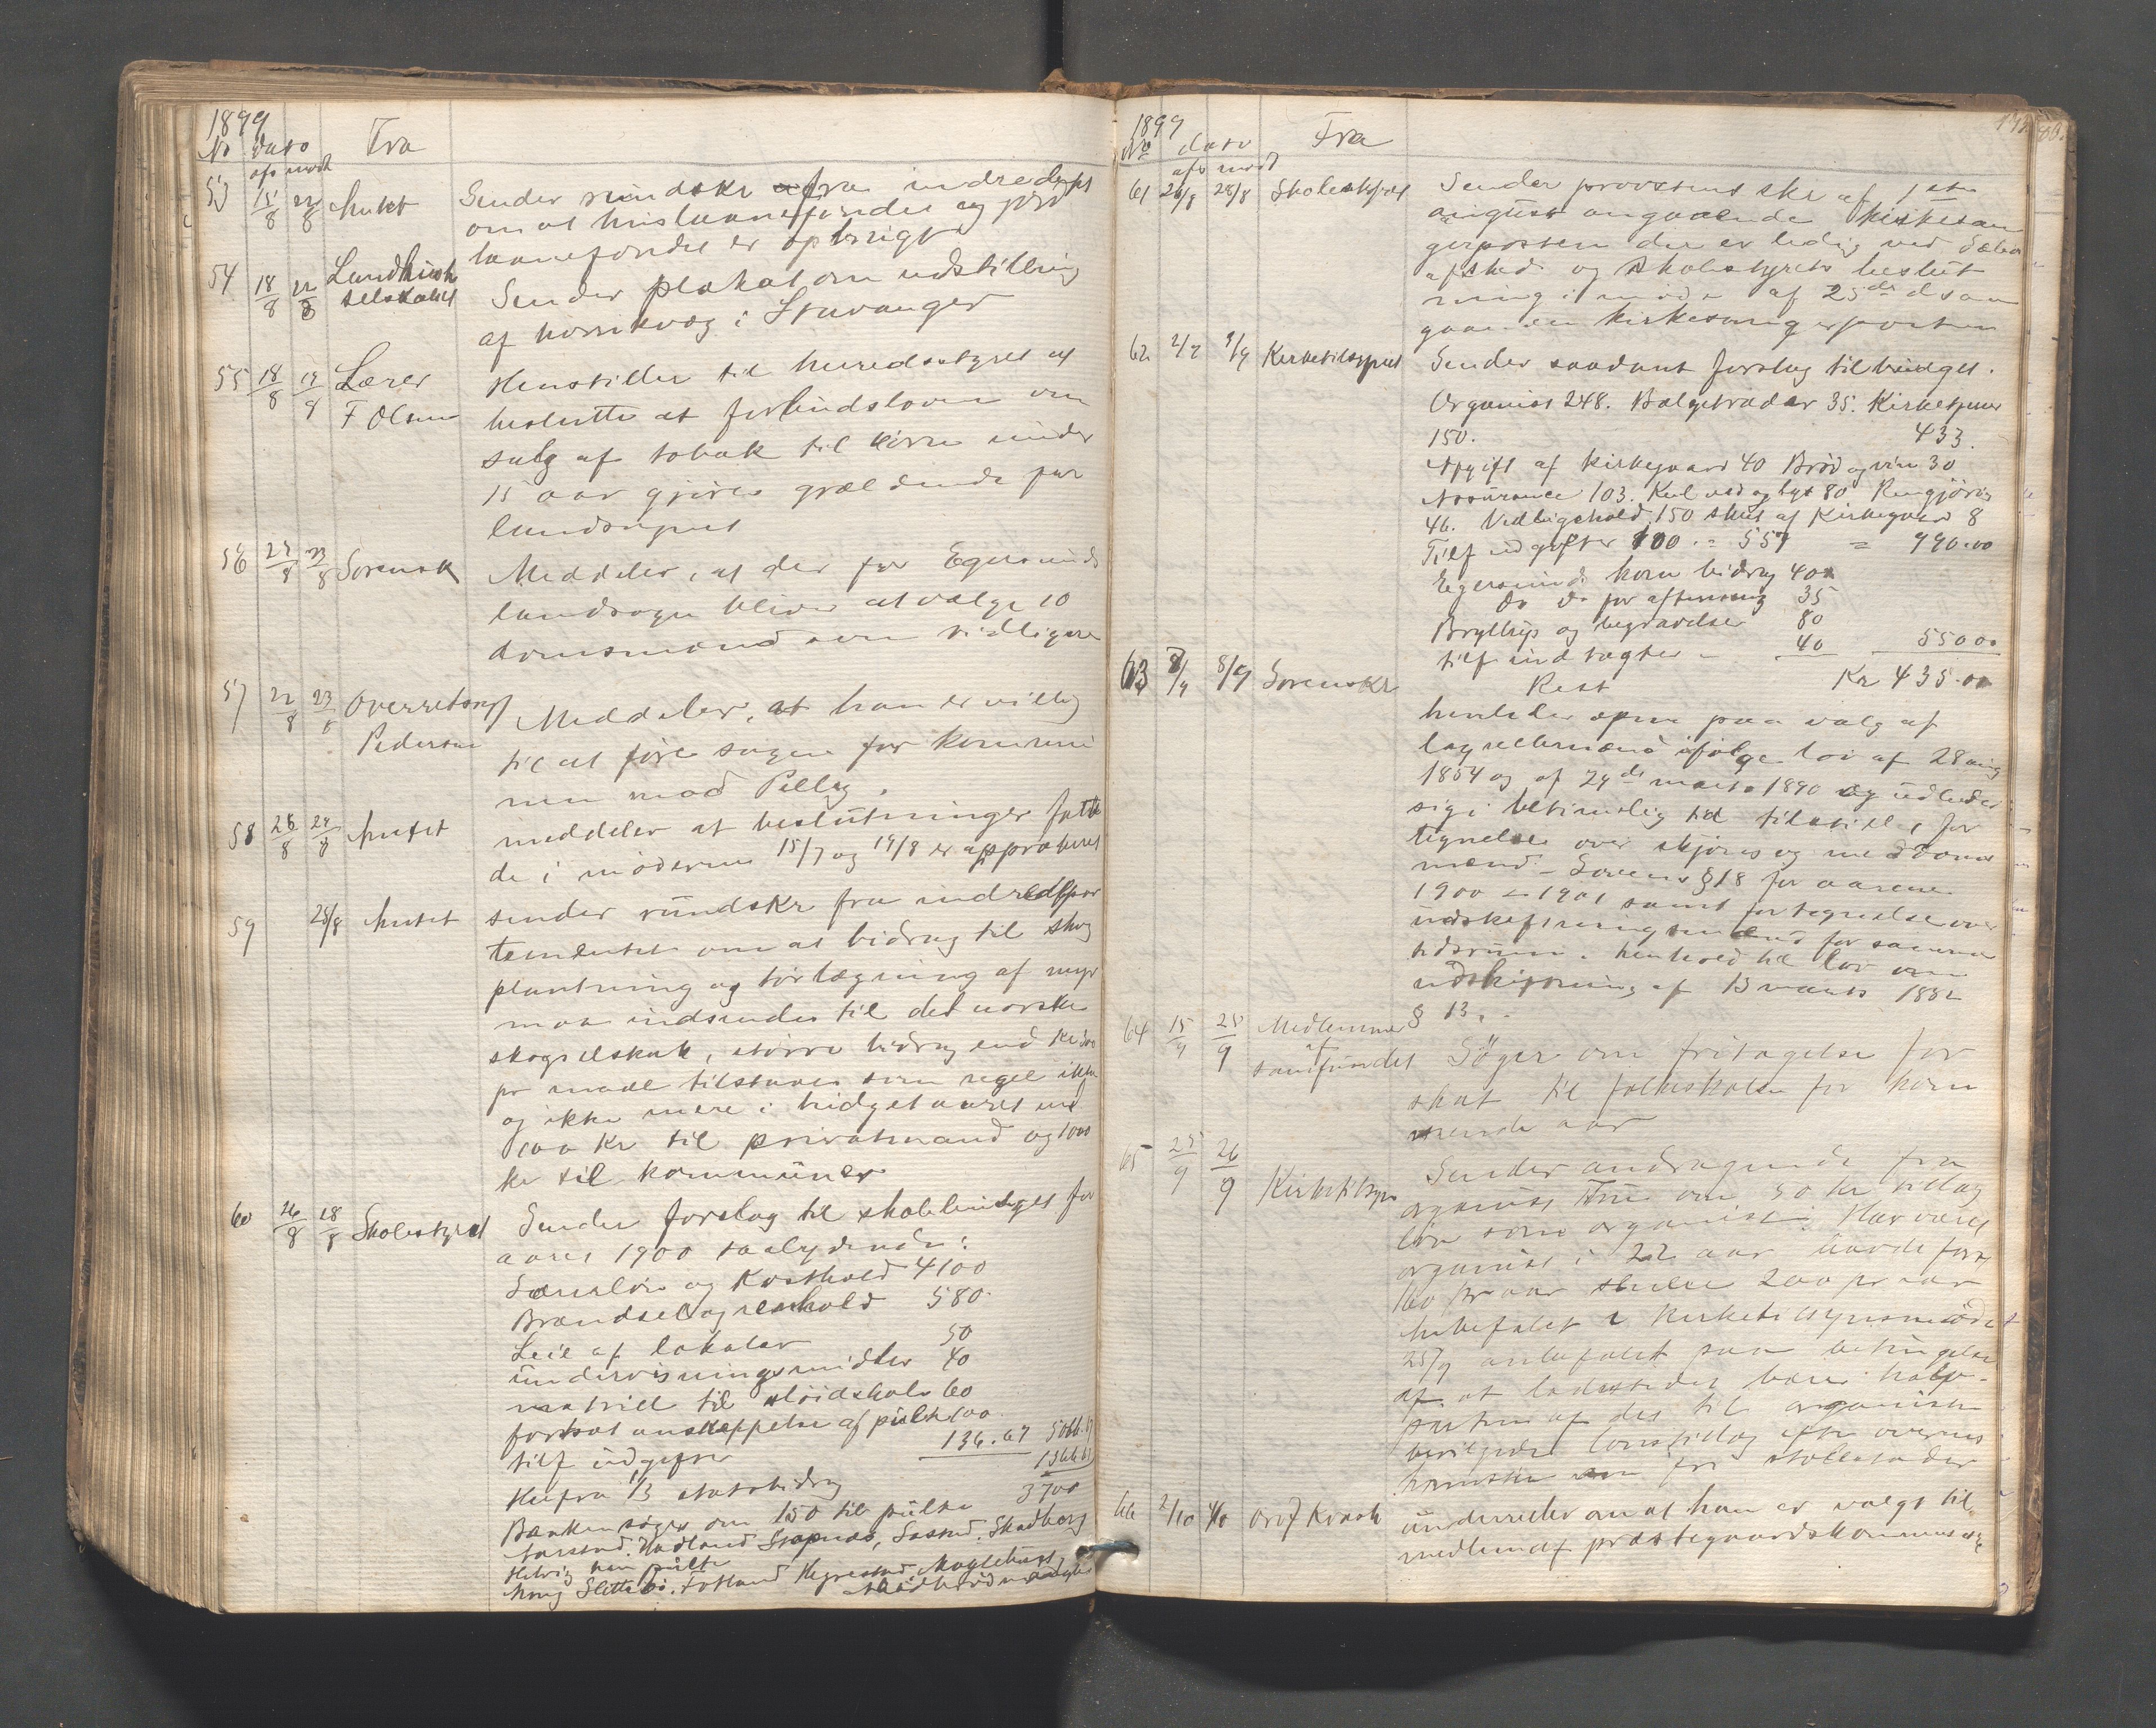 1899
No dato Fra
afs modt
53 15/8 22/8 Amtet Sender rundskr fra indredept
om at huslaanefondet og jord
laanefondet er opbrugt
54 18/8 22/8 Landhush
selskabet Sender plakat om udstilling
af hornkvæg i Stavanger
55 18/8 19/8 Lærer
F Olsen Henstiller til heredsstyret at
beslutte at forbudsloven om
salg af tobak til börn under
15 aar gjöres gjældende for
landsognet
56 23/8 Sorensk Meddeler, at der for Egersunds
landsogn bliver at vælge 10
domsmænd som tidligere
57 22/8 23/8 Overretssagf
Pedersen Meddeler, at han er villig
til at före sagen for kommu
nen mod Pelly.
58 26/8 Amtet meddeler at beslutninger fatte
de i möderne 15/7 og 19/8 er approberet
59 28/8 Amtet sender rundskr fra indredepar
tementet om at bidrag til skog
plantning og törlægning af myr
maa indsendes til det norske
skogselskab, större bidrag end kr
pr maal tilstaaes som regel ikke
og ikke mere i budgetaaret end
100 kr til privatmand og 1000
kr til kommuner
60 26/8 28/8 Skolestyret Sender forslag til skolebudget for
aaret 1900 saalydende:
Lærerlön og Kosthold 4100
Brændsel og renhold 580.
Leie af lokaler 50
undervisningsmidler 40
matriel til slöidskole 60
fortsat anskaffelse af pulte 100
tilf udgifter 136.67 5066.67
Herfra 1/3 statsbidrag 1366.67
3700
Banken söges om 150 til pulte
Aarstad. Hadland Skadberg
Slettebö. Hegrestad.
1899
No dato Fra
afs modt
61 26/8 28/8 Skolestyret Sender provstens skr af 1ste
august angaaende kirkesan
gerposten der er ledig ved
afsked og skolestyrets beslut
ning i möde af 25de ds an
gaaende kirkesangerposten
62 2/9 Kirketilsynet Sender saadant forslag til budget.
Organist 248. Bælgetræder 35. Kirketjener
150. 433.
Afgift af kirkegaard 40 Bröd og vin 30
Assurance 103. Kul ved og lys 80 Rengjöring
46. Vedligehold 150 skat af Kirkegaard 8
Tilf udgifter 100. = 557 = 990.00
Egersunds kom bidrag 400
do do for aftensang 35
Bryllup og begravelse 80
tilf indtægter 40 550.00
Rest Kr 435.00
63 8/9 8/9 Sorenskr henleder opm paa valg af
lagrettemænd ifölge lov af 28 aug
1854 og af 29de marts 1890 og udbeder
sig i betimelig tid tilstillet for
tegnelse over skjöns og meddoms
mænd. - Lovens § 18 for aarene
1900 - 1901 samt fortegnelse over
udskiftningsmænd for samme
tidsrum i henhold til lov om
udskiftning af 13 marts 1882
§ 13.
64 15/9 25/9 Medlemmer
af
samfundet Söger om fritagelse for
skat til folkeskolen for kom
mende aar
65 25/9 26/9 Kirketilsyn Sender andragende fra
organist om 50 kr tillæg
lön som organist. Har været
organist i 22 aar havde först
160 pr aar senere 200 pr aar
anbefalet i Kirketilsynsmödet
25/9 anbefalet paa betingelse
af at ladestedet bærer halv-
parten af det til organisten
bevilgede lönstillæg efter overens
komsten om fri stolestader
66 2/10 4/10 Ovrf Kvask underretter om at han er valgt til
medlem af præstegaardskommission